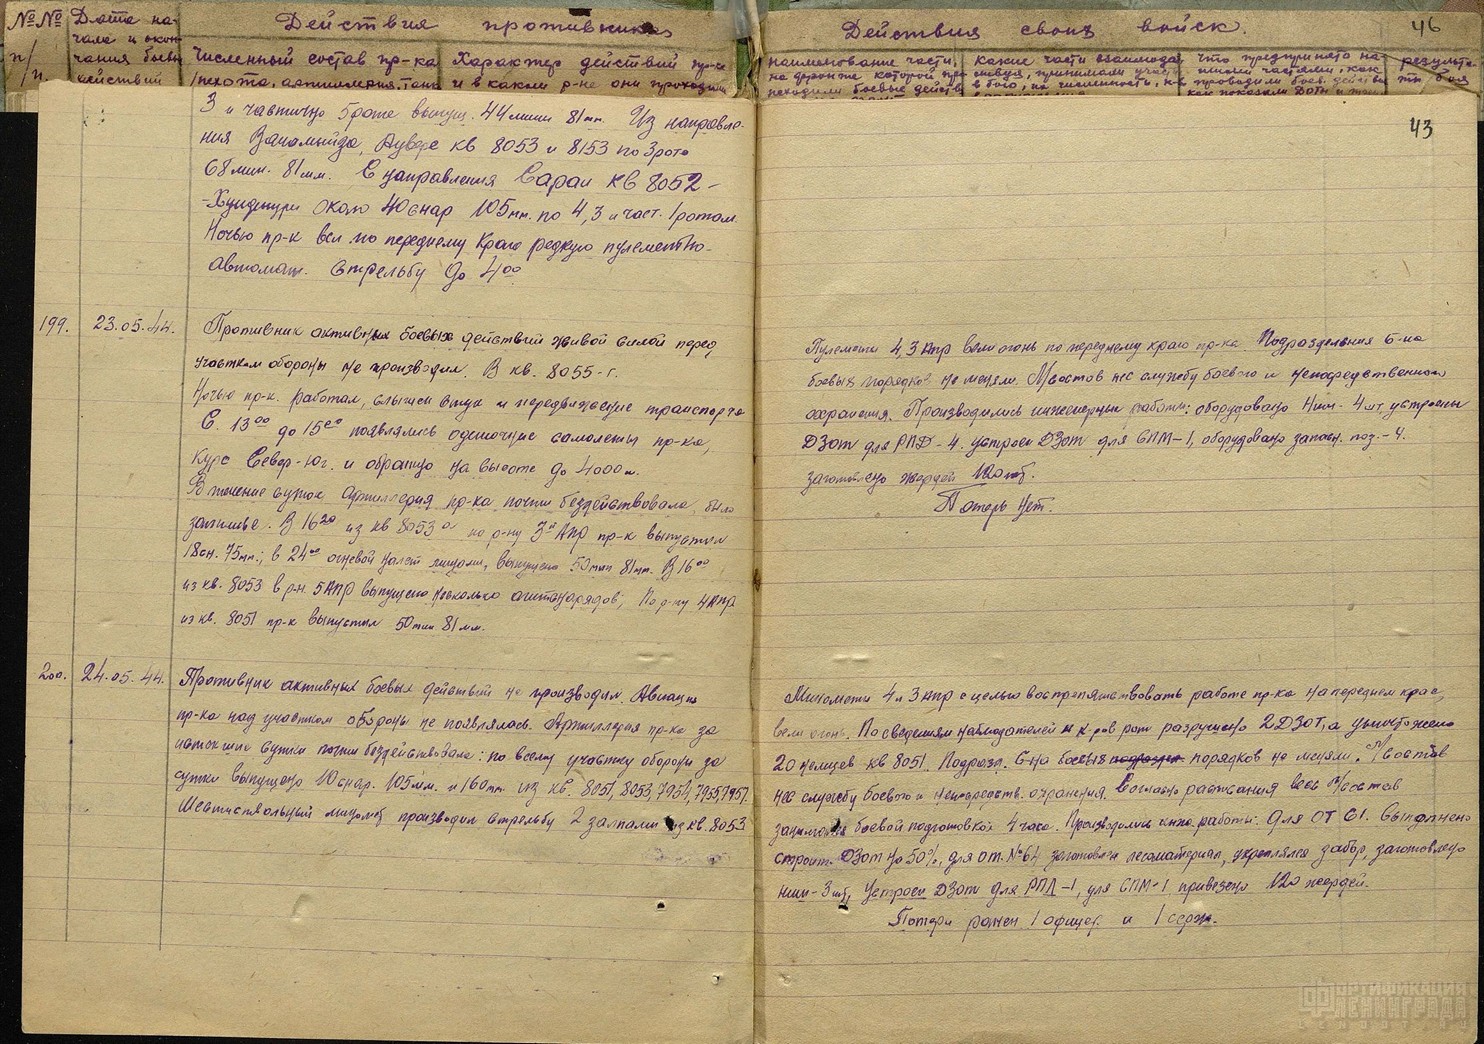 №№ п/п.
Дата на-
чала и окон-
чания боевы
действий
Действия противника
численный состав пр-ка
/пехота, артиллерия, танк
Характер действий пр-ка
и в каком р-не они проходили
Действия своих войск.
46
наименование части,
на фронте которой про-
исходили боевые действ
какие части взаимодей-
ствуя, принимали участ
в бою, их численность,
что предпринято на-
шими частями, как
проводили боев. действи
как показали ДОТы и
результа-
ты боя
43
3 и частично 5 роте выпущ. 44 мины 81 мм. Из направле-
ния Ванамыйза, Аувере кв 8053 и 8153 по 3 роте
68 мин. 81 мм. С направления Сараи кв 8052 -
-Хундинури около 40 снар 105 мм. по 4, 3 и част. 1 ротам.
Ночью пр-к вел по переднему краю редкую пулеметно-
автомат. стрельбу до 4⁰⁰
199.
23.05.44.
Противник активных боевых действий живой силой перед
участком обороны не производил. В кв. 8055-г.
Ночью пр-к. работал, слышен стук и передвижение транспорта
С 13⁰⁰ до 15⁰⁰ появлялись одиночные самолеты пр-ка,
курс Север-Юг. и обратно на высоте до 4000 м.
В течение суток артиллерия пр-ка почти бездействовала, было
затишье. В 16²⁰ из кв 8053 по р-ну 3й кпр пр-к выпустил
18 сн. 75 мм.; в 24⁰⁰ огневой налет мином., выпущено 50 мин 81 мм. В 16⁰⁰
из кв. 8053 в р-н. 5 кпр выпущено несколько агитснарядов; По р-ну 4 кпр
из кв. 8051 пр-к выпустил 50 мин 81 мм.
Пулеметы 4, 3 кпр вели огонь по переднему краю пр-ка. Подразделения б-на
боевых порядков не меняли. М/состав нес службу боевого и непосредственного
охранения. Производились инженерные работы: оборудовано 4 шт. устроены
ДЗОТ для РПД-4. устроен ДЗОТ для СПМ-1, оборудовано запасн. поз.-4.
заготовлено жердей 120 шт.
Потерь нет.
200.
24.05.44.
Противник активных боевых действий не производил. Авиация
пр-ка над участком обороны не появлялась. Артиллерия пр-ка за
истекшие сутки почти бездействовала: по всему участку обороны за
сутки выпущено 10 снар. 105 мм. и 160 мм из кв. 8051, 8053, 7954, 7955, 7951.
Шестиствольный миномет производил стрельбу 2 залпами из кв. 8053
Минометы 4 и 3 кпр с целью воспрепятствовать работе пр-ка на переднем крае,
вели огонь. По сведениям наблюдателей и к-ров рот разрушено 2 ДЗОТ, а уничтожено
20 немцев кв 8051. Подразд. б-на боевых порядков не меняли. Л/состав
нес службу боевого и непосредств. охранения. Согласно расписания весь л/состав
занимался боевой подготовкой 4 часа. Производились инж. работы: для ОТ 61. выполнено
строит. ДЗОТ на 50%, для от. №64 заготовлен лесоматериал, укреплялся забор, заготовлено
3 шт, Устроен ДЗОТ для РПД-1, для СПМ-1 привезено 120 жердей.
Потери ранен 1 офицер и 1 серж.
ФОРТИФИКАЦИЯ
ЛЕНИНГРАДА